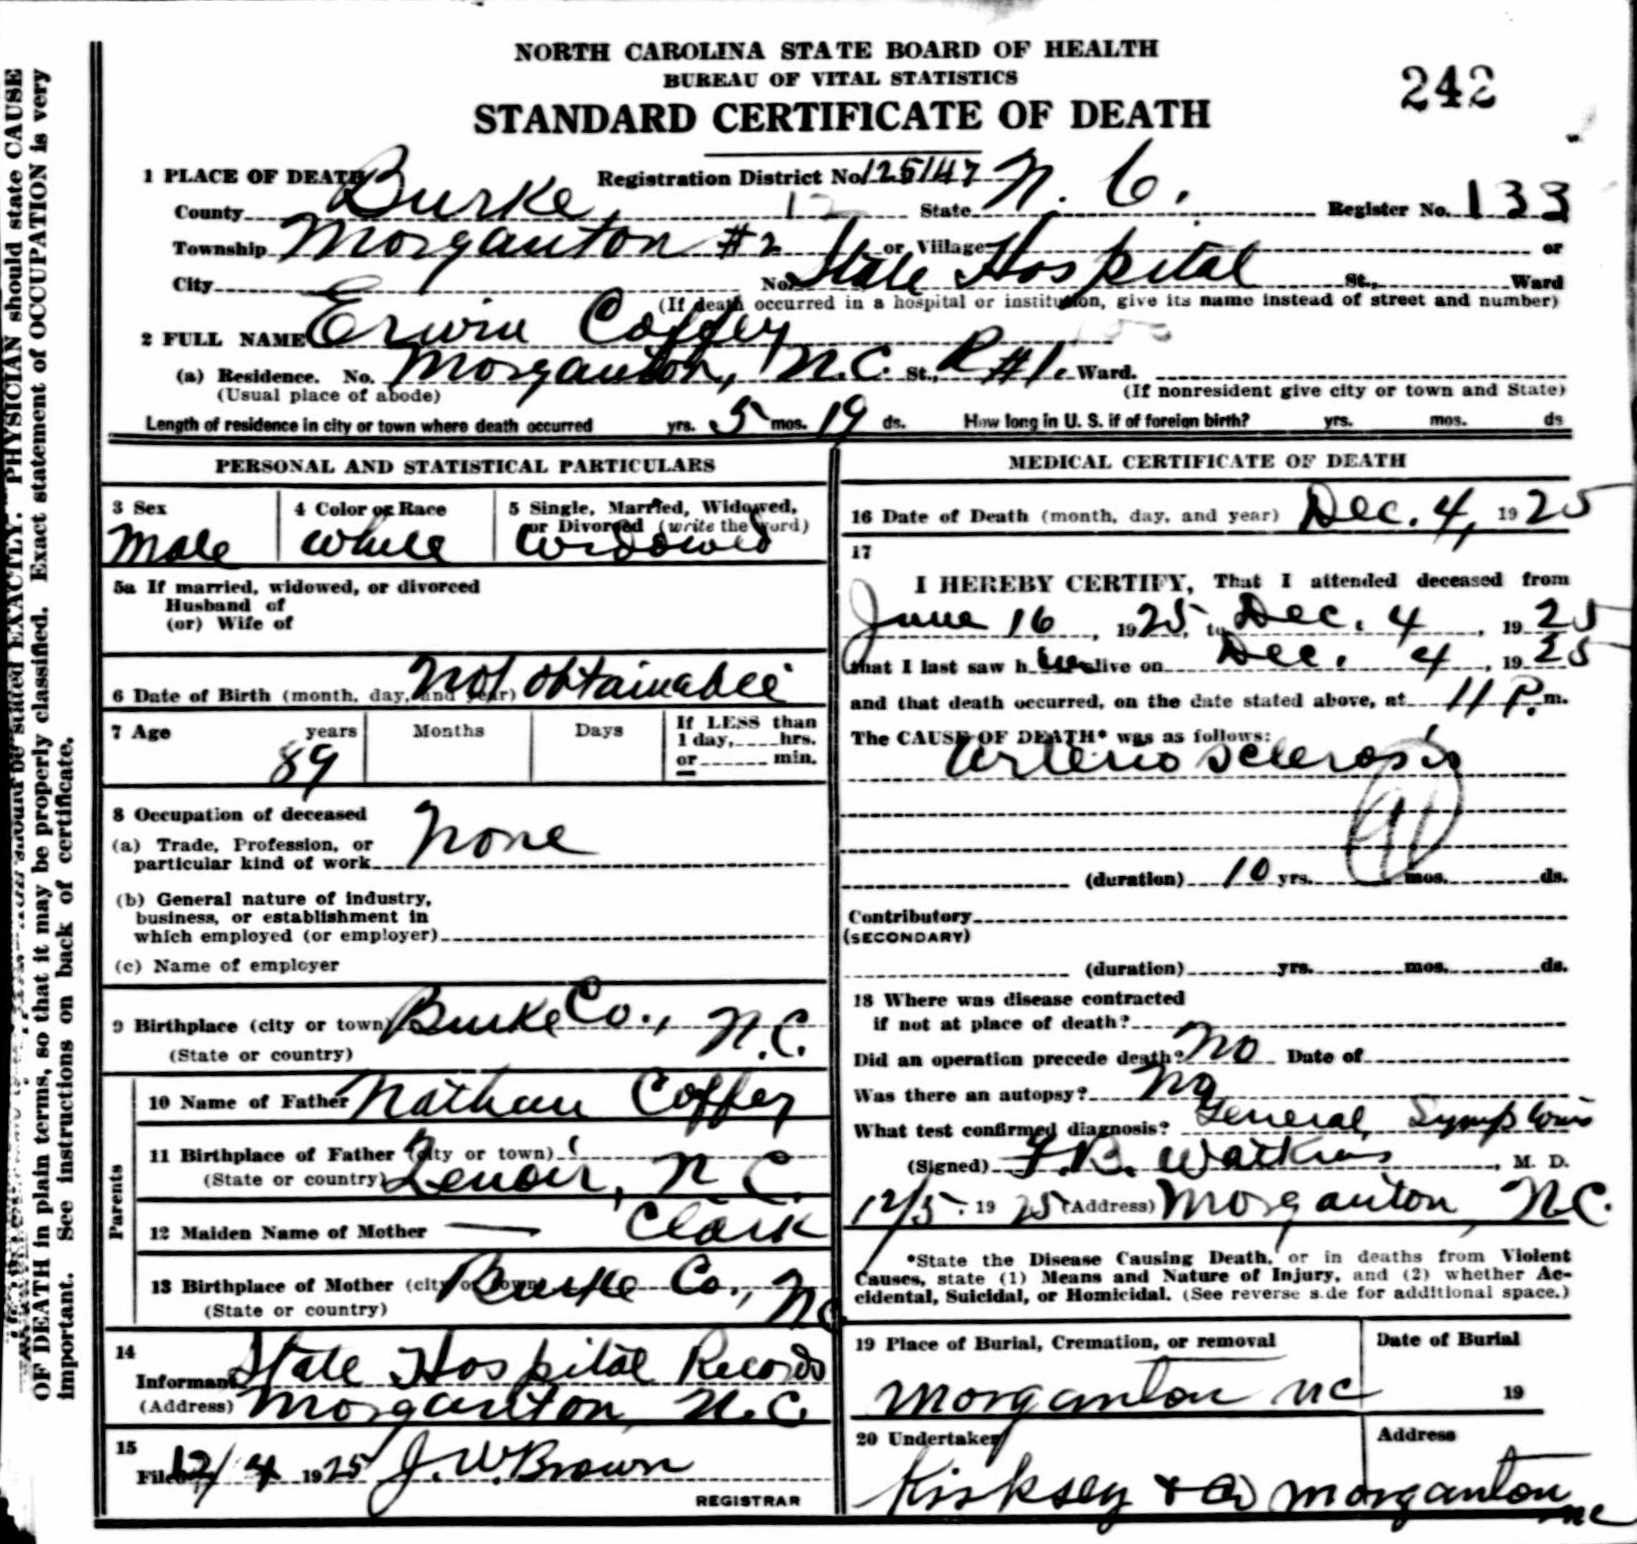 NORTH CAROLINA STATE BOARD OF HEALTH
BUREAU OF VITAL STATISTICS
STANDARD CERTIFICATE OF DEATH
242
1 PLACE OF DEATH Registration District No. 125147
County Burke, 12 State N. C. Register No. 133
Township Morganton #2 or Village or
City No. State Hospital St., Ward
(If death occurred in a hospital or institution, give its name instead of street and number)
2 FULL NAME Erwin Coffey
(a) Residence. No. Morganton, N.C. St., R#1. Ward.
(Usual place of abode) (If nonresident give city or town and State)
Length of residence in city or town where death occurred yrs. 5 mos. 19 ds. How long in U. S. if of foreign birth? yrs. mos. ds
PERSONAL AND STATISTICAL PARTICULARS
3 Sex 4 Color or Race 5 Single, Married, Widowed,
or Divorced (write the word)
Male White Widowed
5a If married, widowed, or divorced
Husband of
(or) Wife of
6 Date of Birth (month, day, and year) Not obtainable
7 Age years Months Days If LESS than
1 day, hrs.
or min.
89
8 Occupation of deceased
(a) Trade, Profession, or
particular kind of work None
(b) General nature of industry,
business, or establishment in
which employed (or employer)
(c) Name of employer
9 Birthplace (city or town) Burke Co., N.C.
(State or country)
Parents
10 Name of Father Nathan Coffey
11 Birthplace of Father (city or town)
(State or country) Lenoir, N.C.
12 Maiden Name of Mother — Clark
13 Birthplace of Mother (city or town) Burke Co., NC
(State or country)
14
Informant State Hospital Records
(Address) Morganton, N.C.
15
Filed 12/4 1925 J. W. Brown
REGISTRAR
MEDICAL CERTIFICATE OF DEATH
16 Date of Death (month, day, and year) Dec. 4, 1925
17
I HEREBY CERTIFY, That I attended deceased from
June 16, 1925, to Dec. 4, 1925
that I last saw him alive on Dec. 4, 1925
and that death occurred, on the date stated above, at 11 P.m.
The CAUSE OF DEATH* was as follows:
Arterio sclerosis
91
(duration) 10 yrs. mos. ds.
Contributory
(SECONDARY)
(duration) yrs. mos. ds.
18 Where was disease contracted
if not at place of death?
Did an operation precede death? No Date of
Was there an autopsy? No
What test confirmed diagnosis? General Symptoms
(Signed) F. B. Watkins, M. D.
12/5. 1925 (Address) Morganton, N.C.
*State the Disease Causing Death, or in deaths from Violent
Causes, state (1) Means and Nature of Injury, and (2) whether Ac-
cidental, Suicidal, or Homicidal. (See reverse side for additional space.)
19 Place of Burial, Cremation, or removal Date of Burial
Morganton NC 19
20 Undertaker Address
Kirksey & Co Morganton
NC
should be stated EXACTLY. PHYSICIAN should state CAUSE
OF DEATH in plain terms, so that it may be properly classified. Exact statement of OCCUPATION is very
important. See instructions on back of certificate.